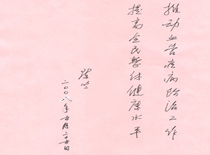 推动血管疾病防治工作
提高全民整体健康水平
二〇〇八年五月二十五日